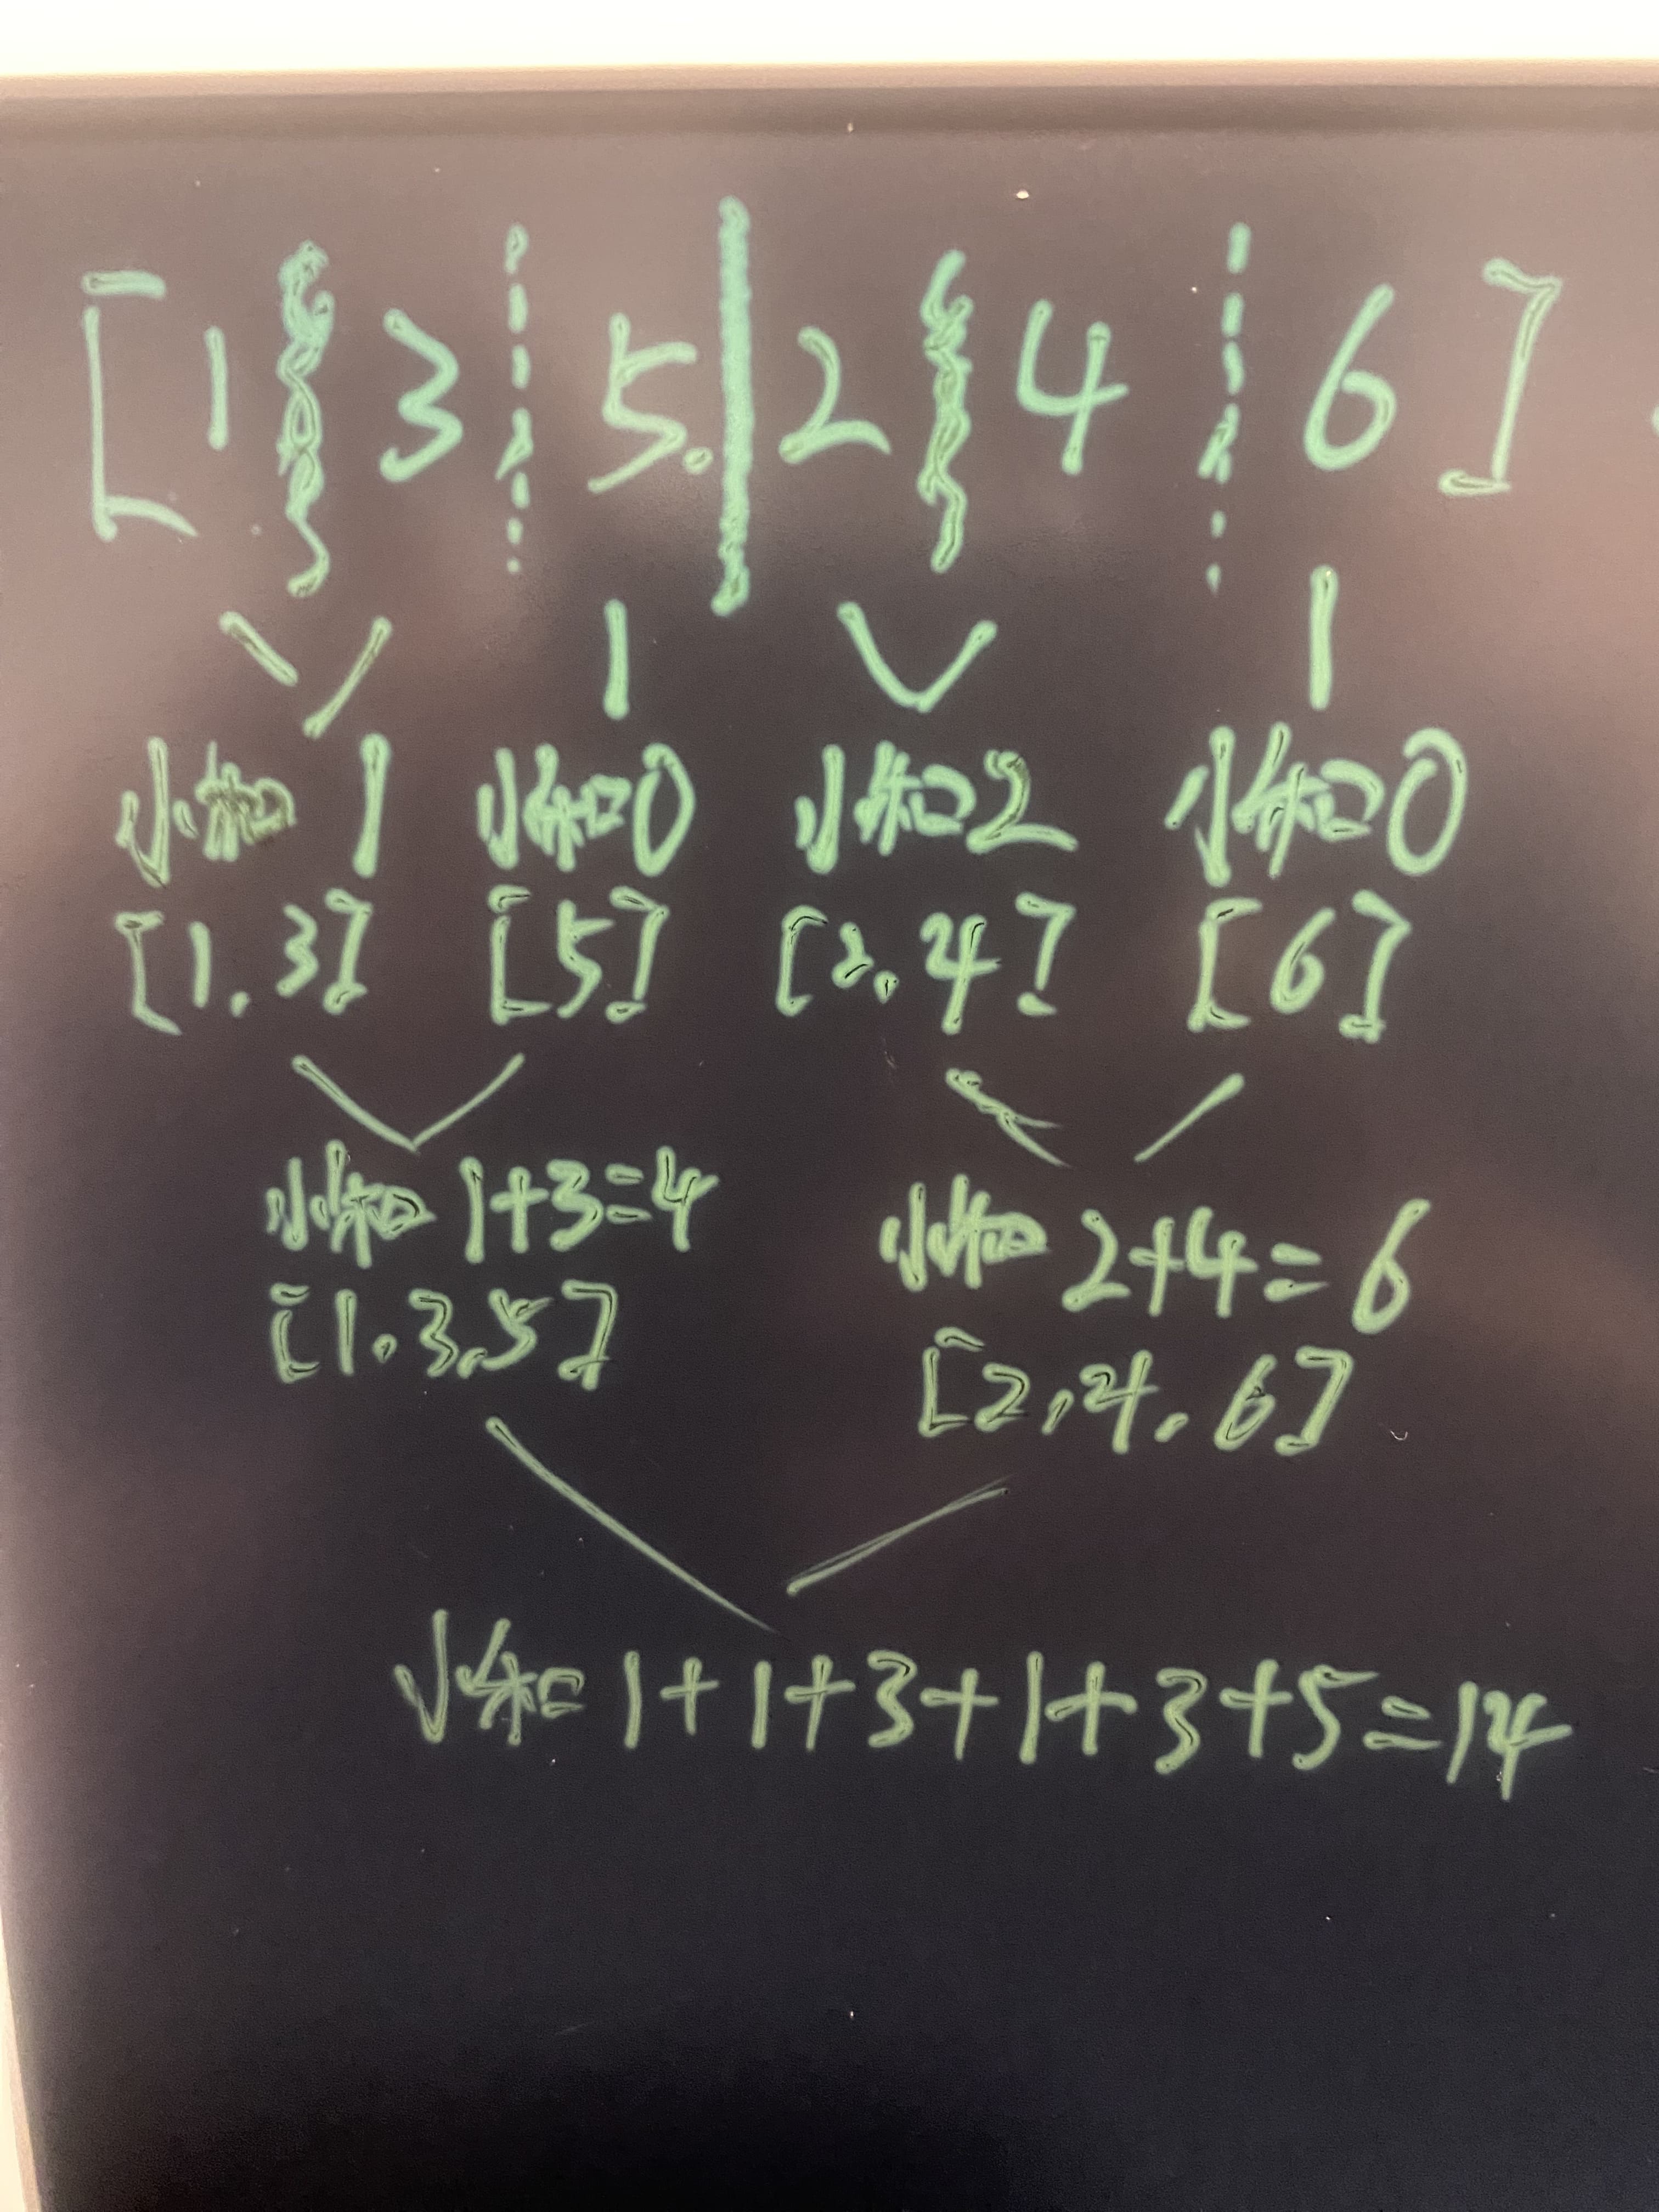 [1 3 5. 2 4 6]
小和 1 小和0 小和2 小和0
[1.3] [5] [2,4] [6]
小和 1+3=4 小和 2+4=6
[1.3,5] [2,4,6]
小和 1+1+3+1+3+5=14